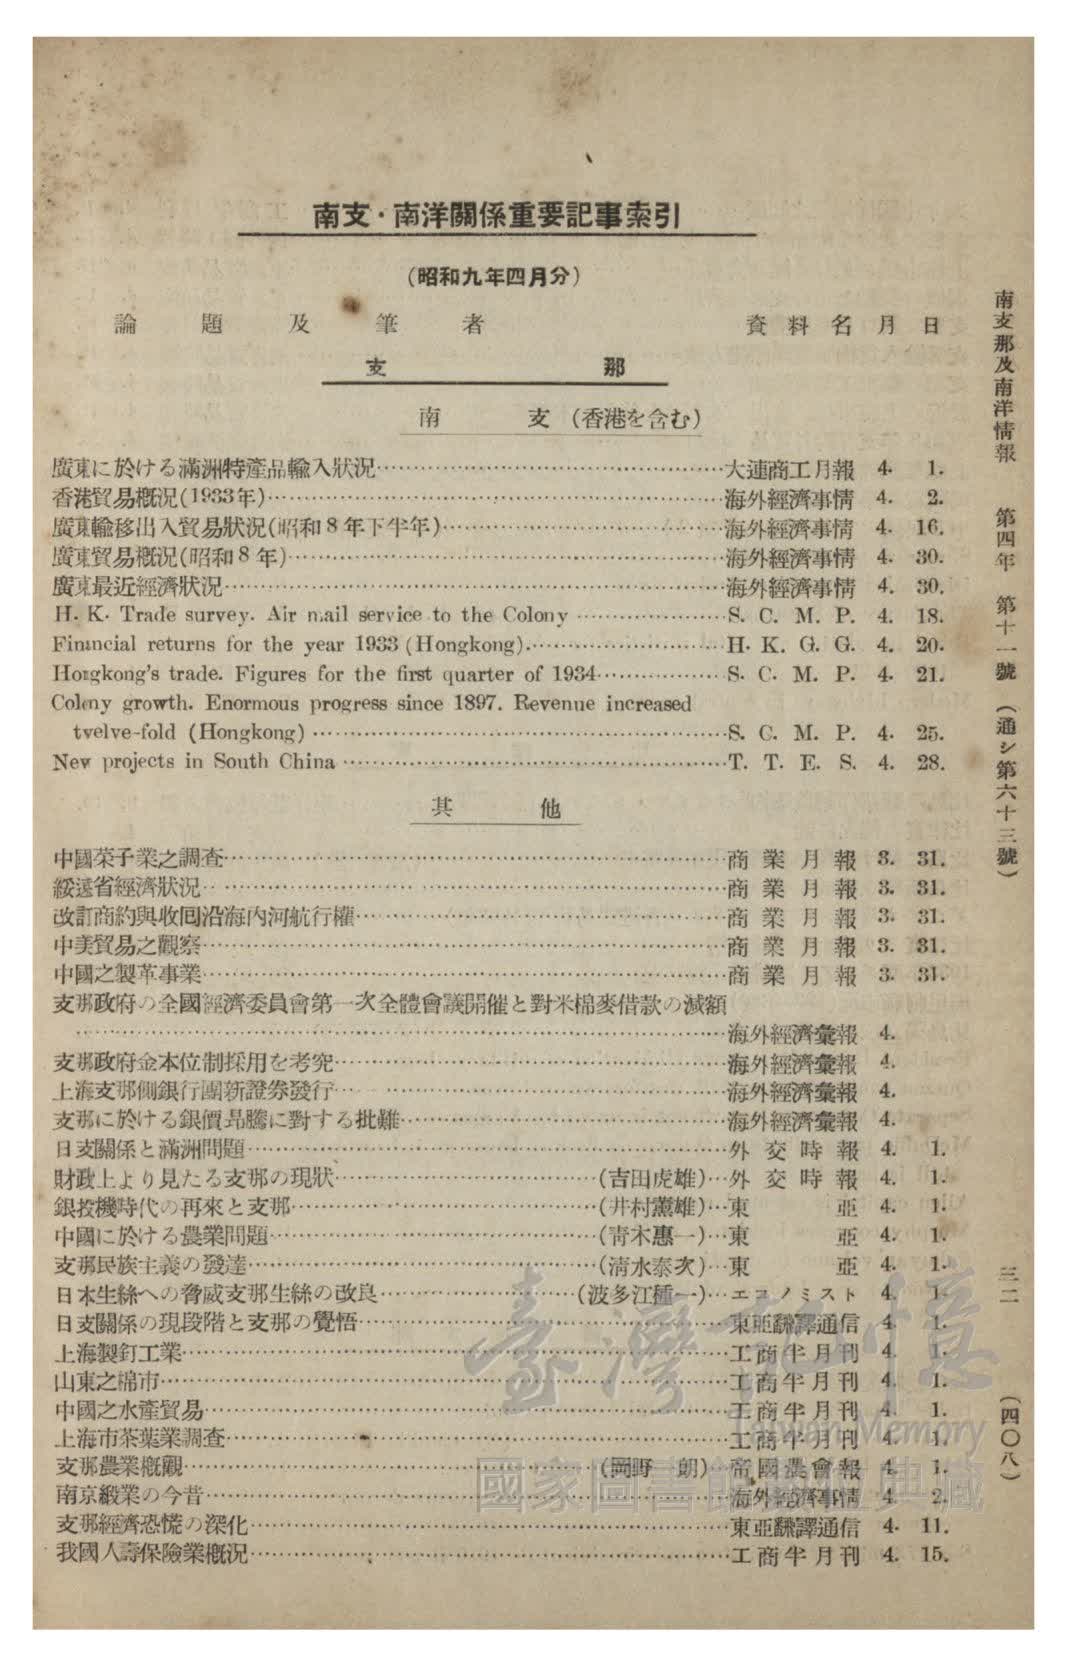 南支・南洋關係重要記事索引
(昭和九年四月分)
論題及筆者 資料名 月 日
支那
南支(香港を含む)
廣東に於ける滿洲特產品輸入狀況……大連商工月報 4. 1.
香港貿易槪況(1933年)……海外經濟事情 4. 2.
廣東輸移出入貿易狀況(昭和8年下半年)……海外經濟事情 4. 16.
廣東貿易槪況(昭和8年)……海外經濟事情 4. 30.
廣東最近經濟狀況……海外經濟事情 4. 30.
H. K. Trade survey. Air mail service to the Colony……S. C. M. P. 4. 18.
Financial returns for the year 1933 (Hongkong)……H. K. G. G. 4. 20.
Hongkong's trade. Figures for the first quarter of 1934……S. C. M. P. 4. 21.
Colony growth. Enormous progress since 1897. Revenue increased
twelve-fold (Hongkong)……S. C. M. P. 4. 25.
New projects in South China……T. T. E. S. 4. 28.
其他
中國茶子業之調查……商業月報 3. 31.
綏遠省經濟狀況……商業月報 3. 31.
改訂商約與收囘沿海內河航行權……商業月報 3. 31.
中美貿易之觀察……商業月報 3. 31.
中國之製革事業……商業月報 3. 31.
支那政府の全國經濟委員會第一次全體會議開催と對米棉麥借款の減額
……海外經濟彙報 4.
支那政府金本位制採用を考究……海外經濟彙報 4.
上海支那側銀行團新證券發行……海外經濟彙報 4.
支那に於ける銀價昻騰に對する批難……海外經濟彙報 4.
日支關係と滿洲問題……外交時報 4. 1.
財政上より見たる支那の現狀……(吉田虎雄)…外交時報 4. 1.
銀投機時代の再來と支那……(井村薰雄)…東亞 4. 1.
中國に於ける農業問題……(靑木惠一)…東亞 4. 1.
支那民族主義の發達……(淸水泰次)…東亞 4. 1.
日本生絲への脅威支那生絲の改良……(波多江種一)…エコノミスト 4. 1.
日支關係の現段階と支那の覺悟……東亞飜譯通信 4. 1.
上海製釘工業……工商半月刊 4. 1.
山東之棉市……工商半月刊 4. 1.
中國之水產貿易……工商半月刊 4. 1.
上海市茶葉業調查……工商半月刊 4. 1.
支那農業槪觀……(岡野 朗)…帝國農會報 4. 1.
南京緞業の今昔……海外經濟事情 4. 2.
支那經濟恐慌の深化……東亞飜譯通信 4. 11.
我國人壽保險業槪況……工商半月刊 4. 15.
南支那及南洋情報 第四年 第十一號 (通シ第六十三號) 三二 (四〇八)
臺灣記憶
Taiwan Memory
國家圖書館
典藏